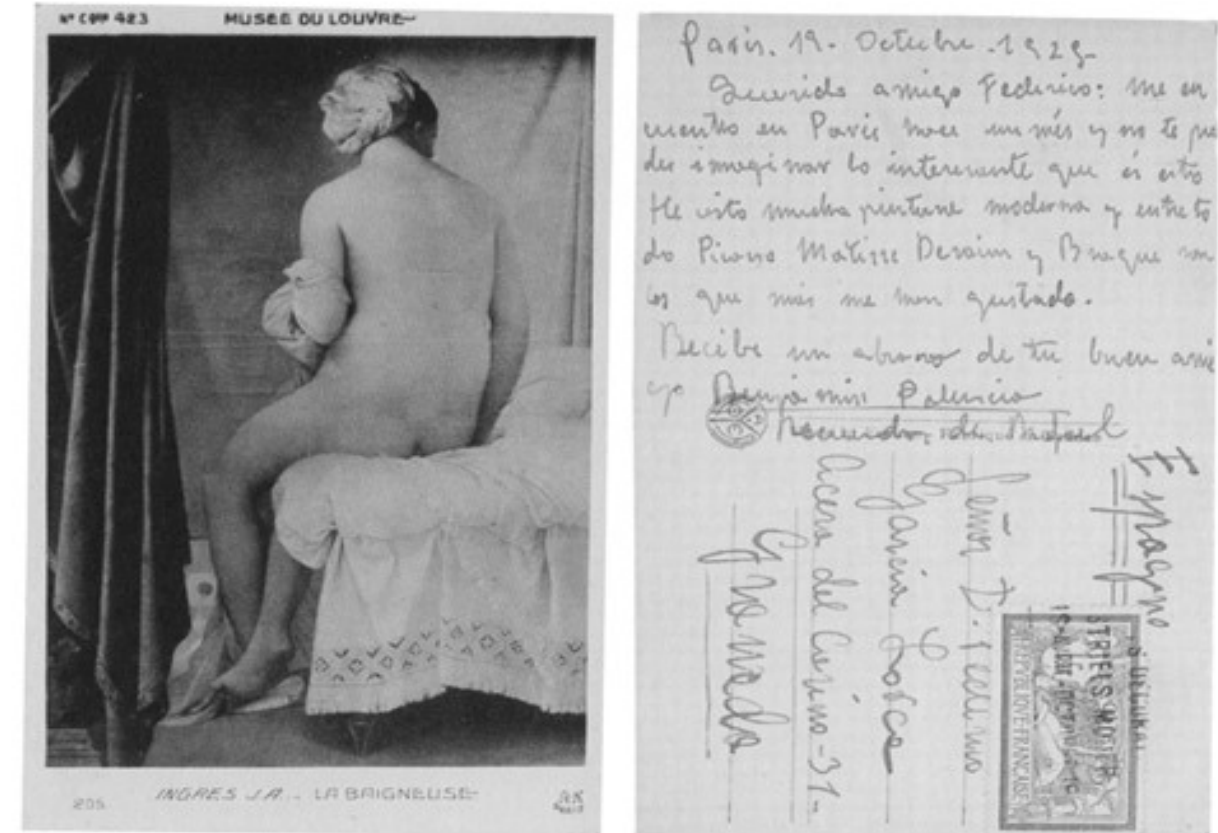 Nº COP 423 MUSÉE DU LOUVRE
205 INGRES J.A... LA BAIGNEUSE
PARIS
Paris. 19. Octubre. 1925-
Querido amigo Federico: me en
cuentro en Paris hace un més y no te pue
des imaginar lo interesante que és esto
He visto mucha pintura moderna y entre to
do Picasso Matisse Derain y Braque son
los que más me han gustado.
Recibe un abrazo de tu buen ami
go Benjamin Palencia
España
Señor D. Federico
Garcia Lorca
Acera del Casino-31-
Granada
REPUBLIQUE FRANÇAISE